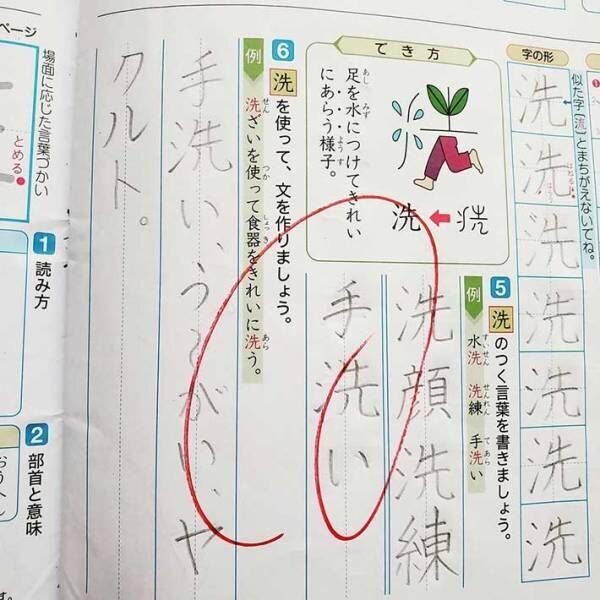 字の形
似た字「流」とまちがえないでね。
洗
洗
洗
洗
洗
洗
洗
はねる
でき方
洗
足を水につけてきれい
にあらう様子。
あし みず
ようす
5 洗のつく言葉を書きましょう。
例 水洗 洗練 手洗い
すいせん せんれん てあら
洗顔洗練
手洗い
6 洗を使って、文を作りましょう。
例 洗ざいを使って食器をきれいに洗う。
せん つか しょっき あら
手洗い、うがい、ヤ
クルト。
ページ
場面に応じた言葉づかい
とめる
1 読み方
2 部首と意味